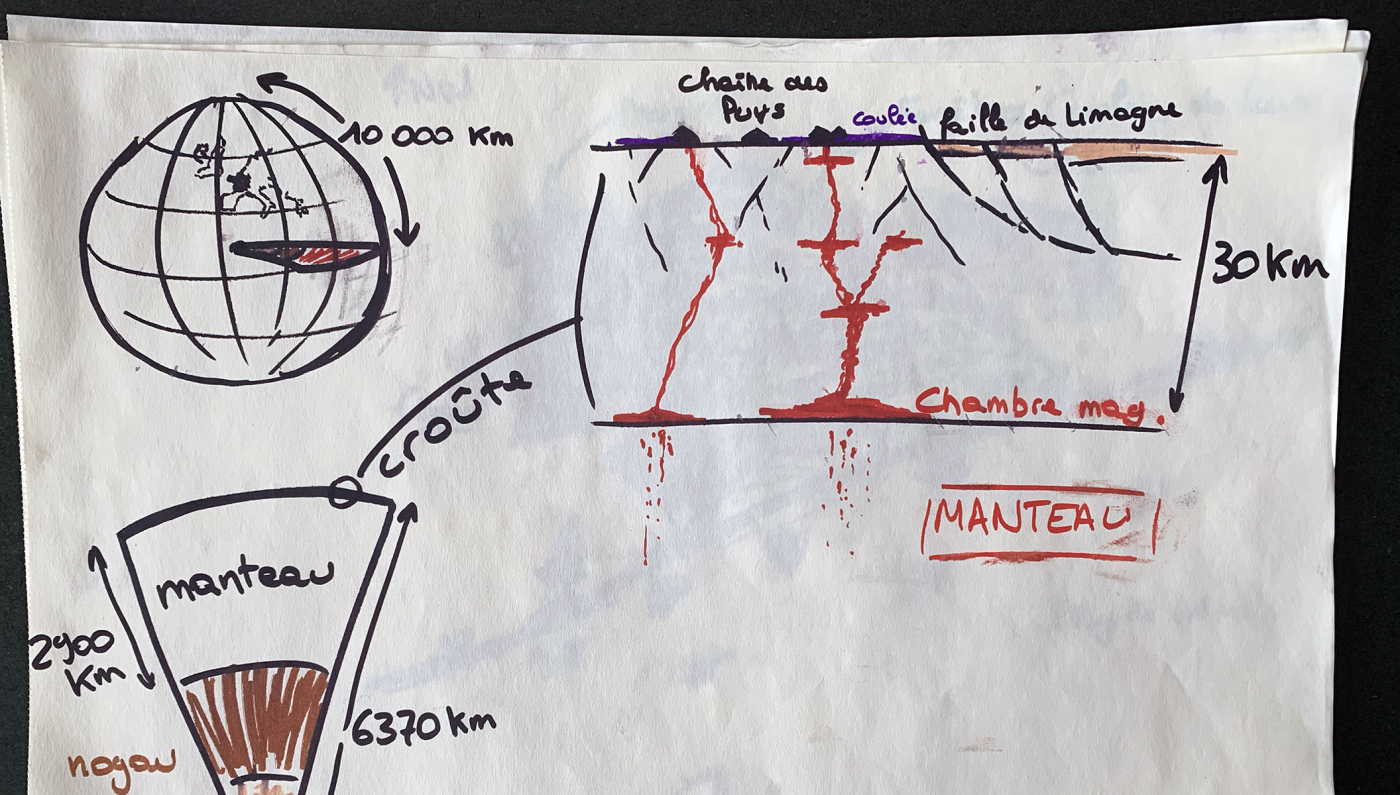 10 000 Km
Chaîne des
Puys
coulée
faille de Limagne
30 Km
croûte
Chambre mag.
MANTEAU
manteau
2900
Km
6370 km
noyau